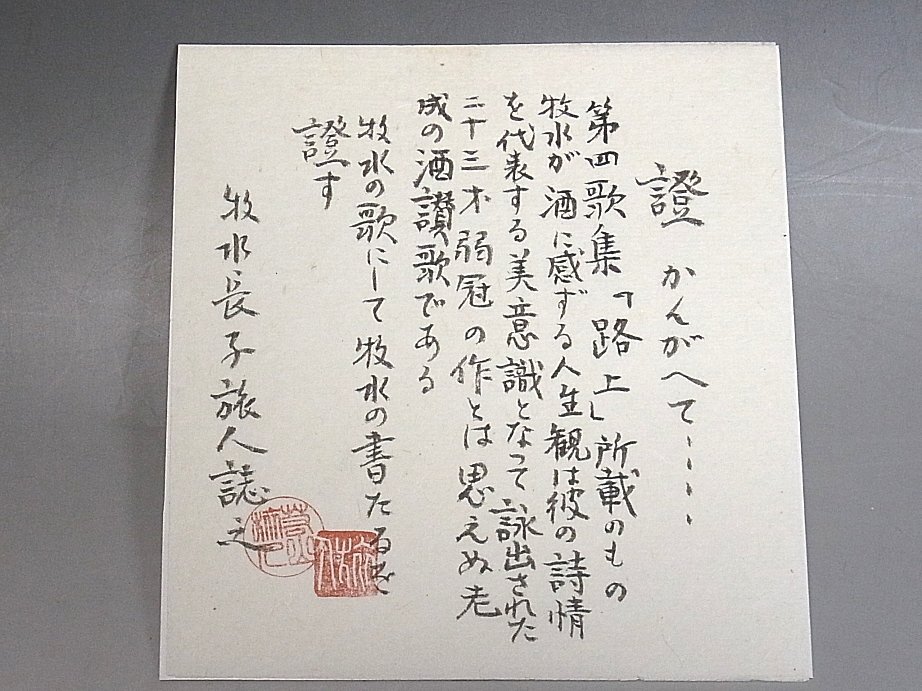 證 かんがへて、、、、
第四歌集「路上」所載のもの
牧水が酒に感ずる人生観は彼の詩情
を代表する美意識となって詠出された
二十三才弱冠の作とは思えぬ老
成の酒讃歌である
牧水の歌にして牧水の書たるを
證す
牧水長子旅人誌之